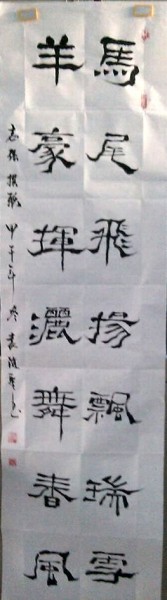 馬尾飛揚飄瑞雪
羊豪揮灑舞春風
甲午年冬